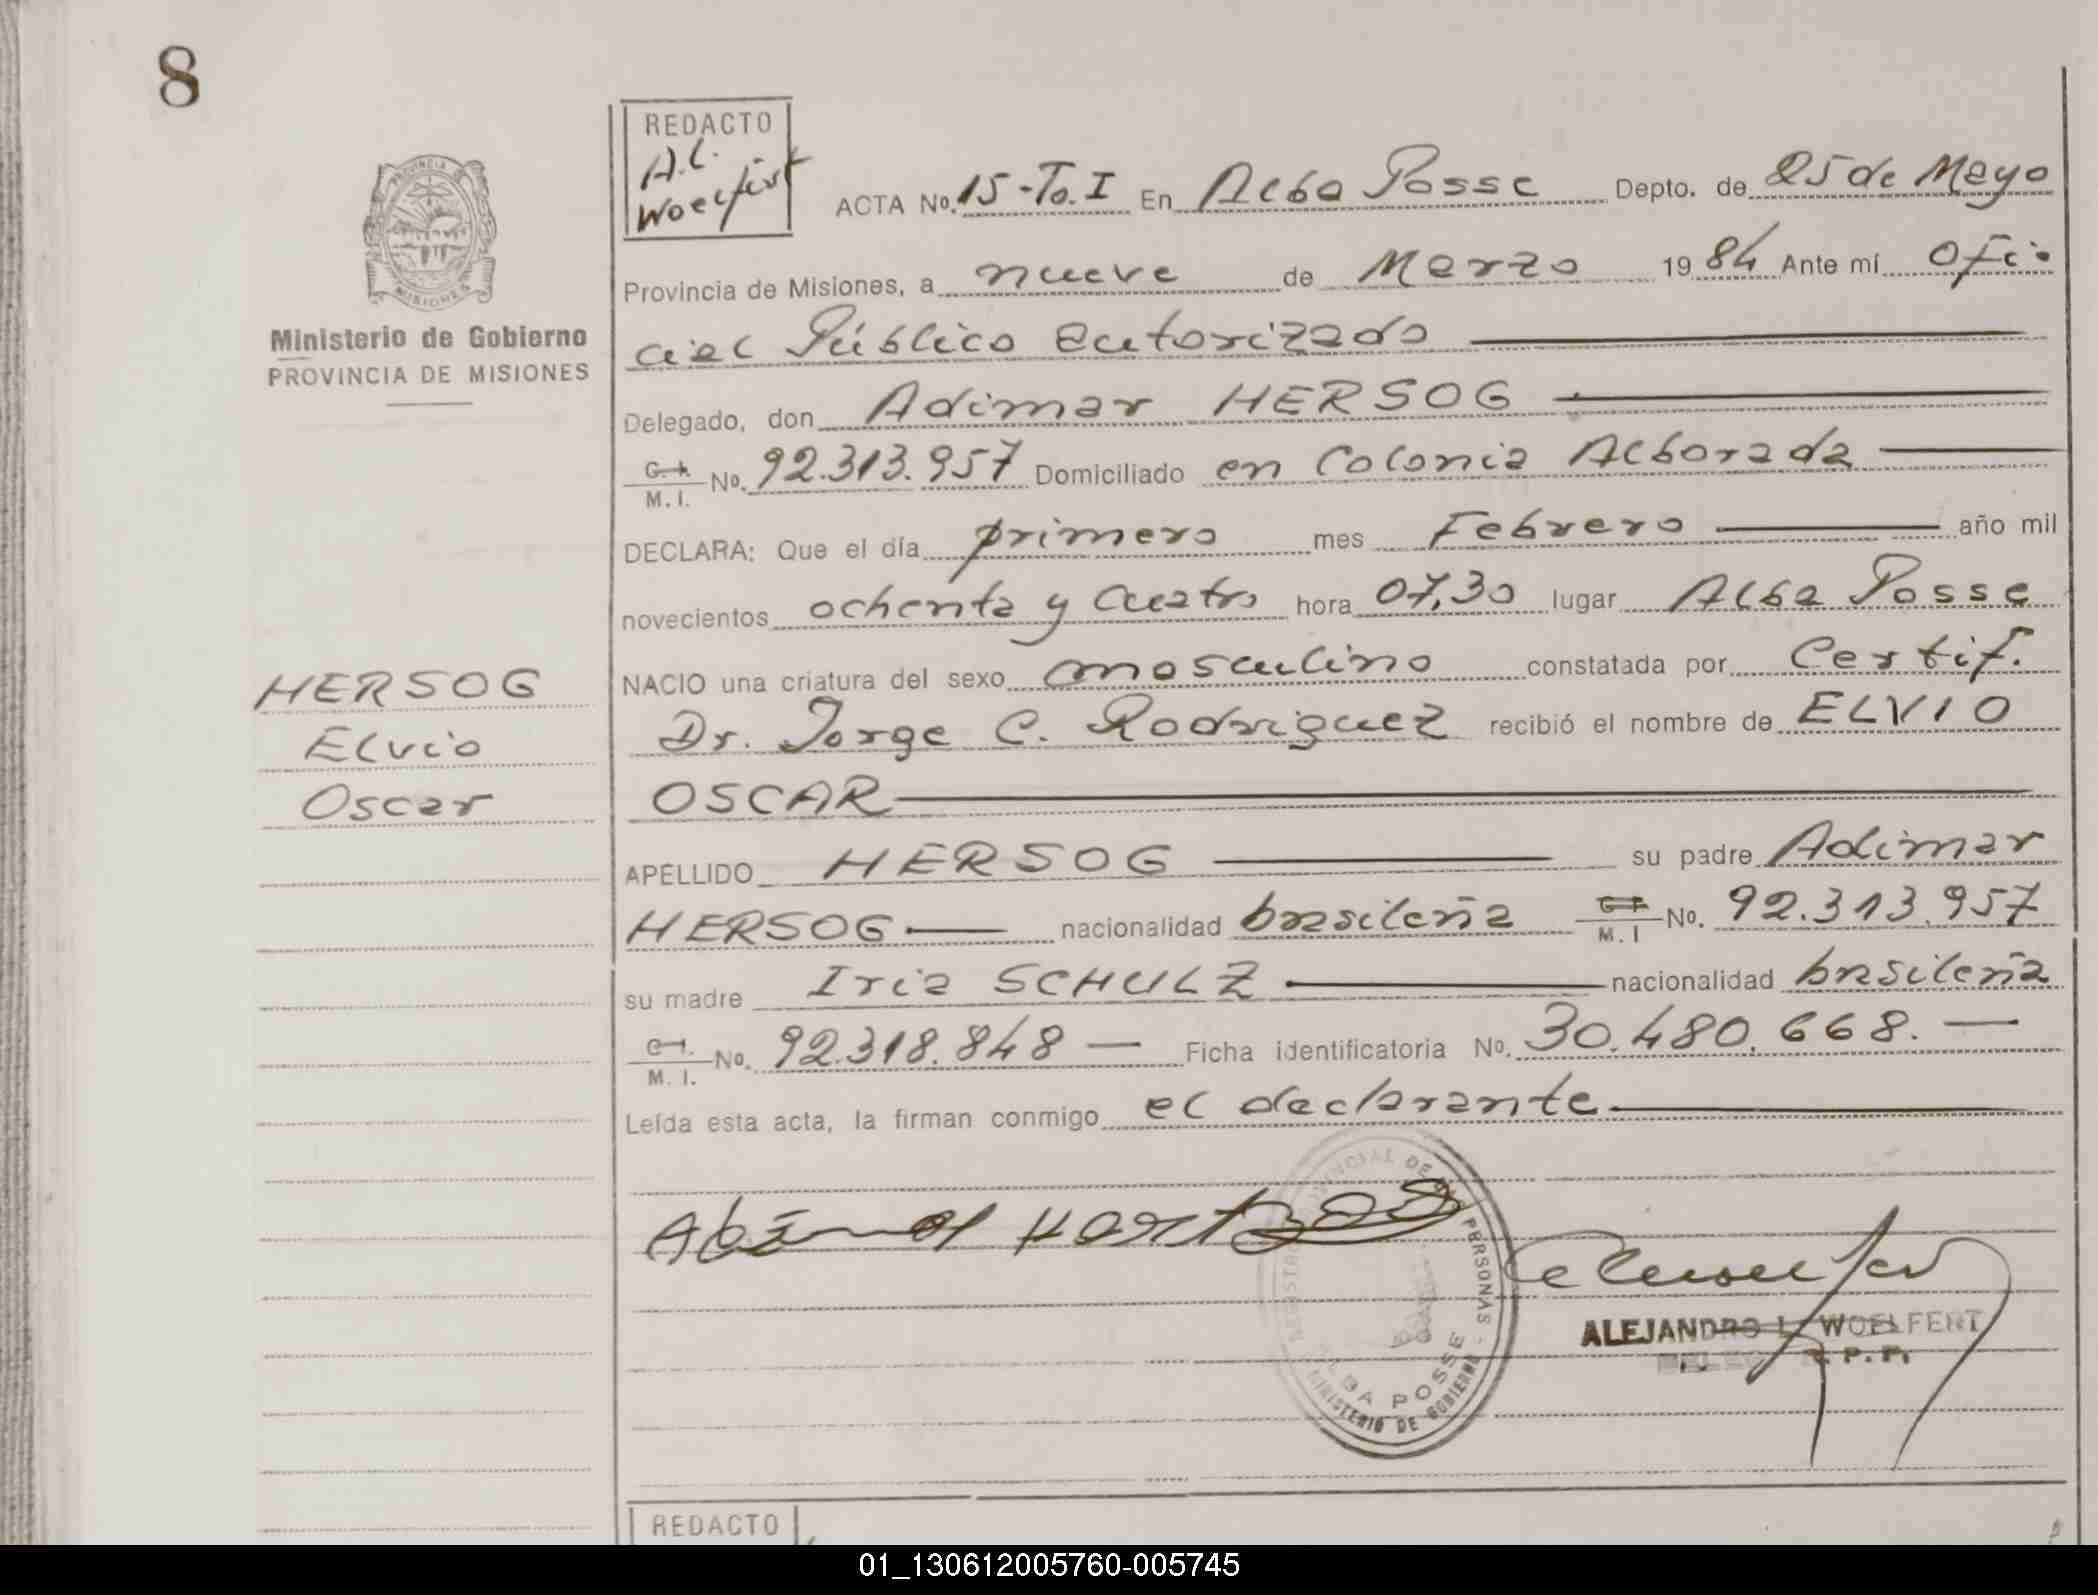 8
REDACTO
A.L.
Woelfert
PROVINCIA
MISIONES
Ministerio de Gobierno
PROVINCIA DE MISIONES
ACTA No. 15-To.I En Alba Posse Depto. de 25 de Mayo
Provincia de Misiones, a nueve de Marzo 1984 Ante mí Ofi-
cial Público autorizado
Delegado, don Adimar HERSOG
C. I. M. I. No. 92.313.957 Domiciliado en Colonia Alborada
DECLARA: Que el día primero mes Febrero año mil
novecientos ochenta y cuatro hora 07,30 lugar Alba Posse
NACIO una criatura del sexo masculino constatada por Certif.
Dr. Jorge C. Rodriguez recibió el nombre de ELVIO
OSCAR
HERSOG
Elvio
Oscar
APELLIDO HERSOG su padre Adimar
HERSOG nacionalidad brasileña M. I No. 92.313.957
su madre Iria SCHULZ nacionalidad brasileña
C. I. M. I. No. 92.318.848 Ficha identificatoria No. 30.480.668.
Leída esta acta, la firman conmigo el declarante
DE PERSONAS
ALBA POSSE
MINISTERIO DE GOBIERNO
ALEJANDRO L. WOELFERT
R. P. P.
REDACTO
01_130612005760-005745